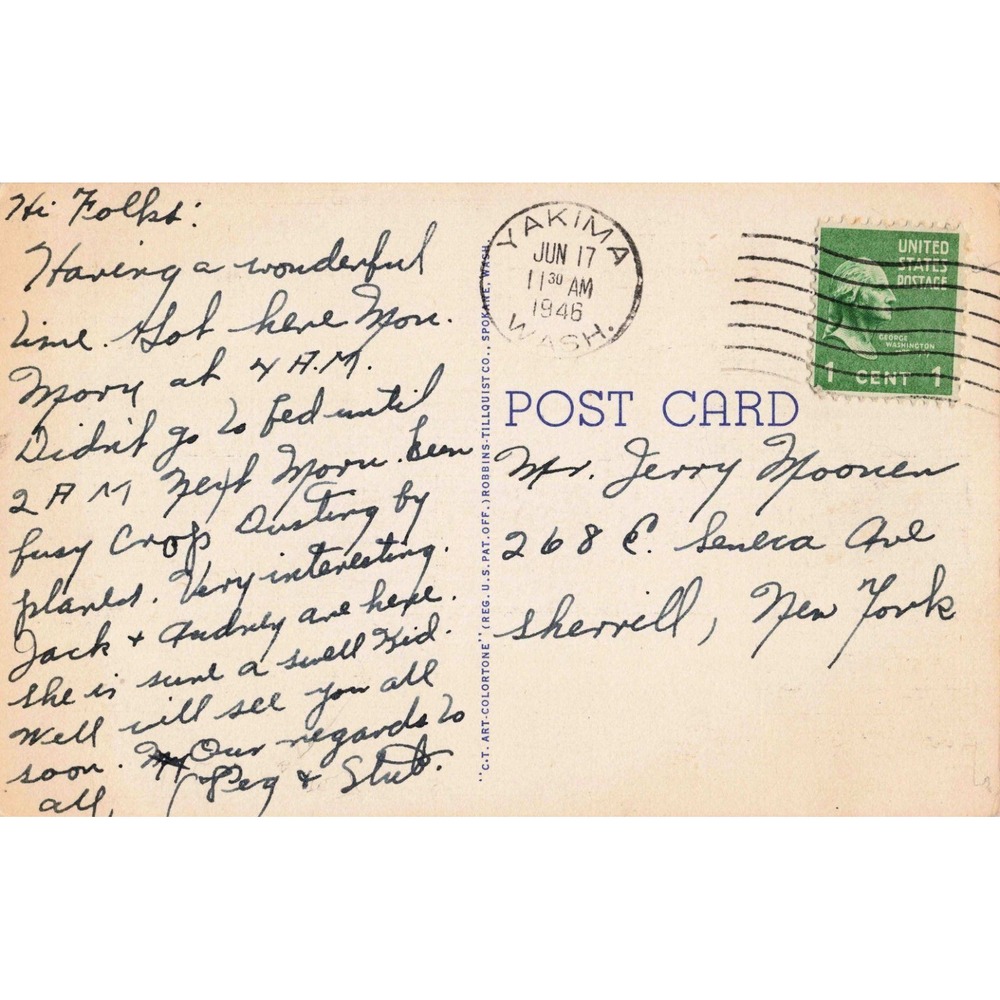 Hi Folks:
Having a wonderful
time. Got here Mon.
Morn at 4 A.M.
Didn't go to bed until
2 A M Next Morn. Been
busy Crop Dusting by
planes. Very interesting.
Jack + Audrey are here.
She is sure a swell Kid.
Well will see you all
soon. Our regards to
all, (Peg & Stub.
"C.T. ART-COLORTONE" (REG. U.S. PAT. OFF.) ROBBINS-TILLQUIST CO., SPOKANE, WASH.
YAKIMA
JUN 17
11 30 AM
1946
WASH.
UNITED
STATES
POSTAGE
GEORGE
WASHINGTON
1 CENT 1
POST CARD
Mr. Jerry Moonen
268 E. Seneca Ave
Sherrill, New York